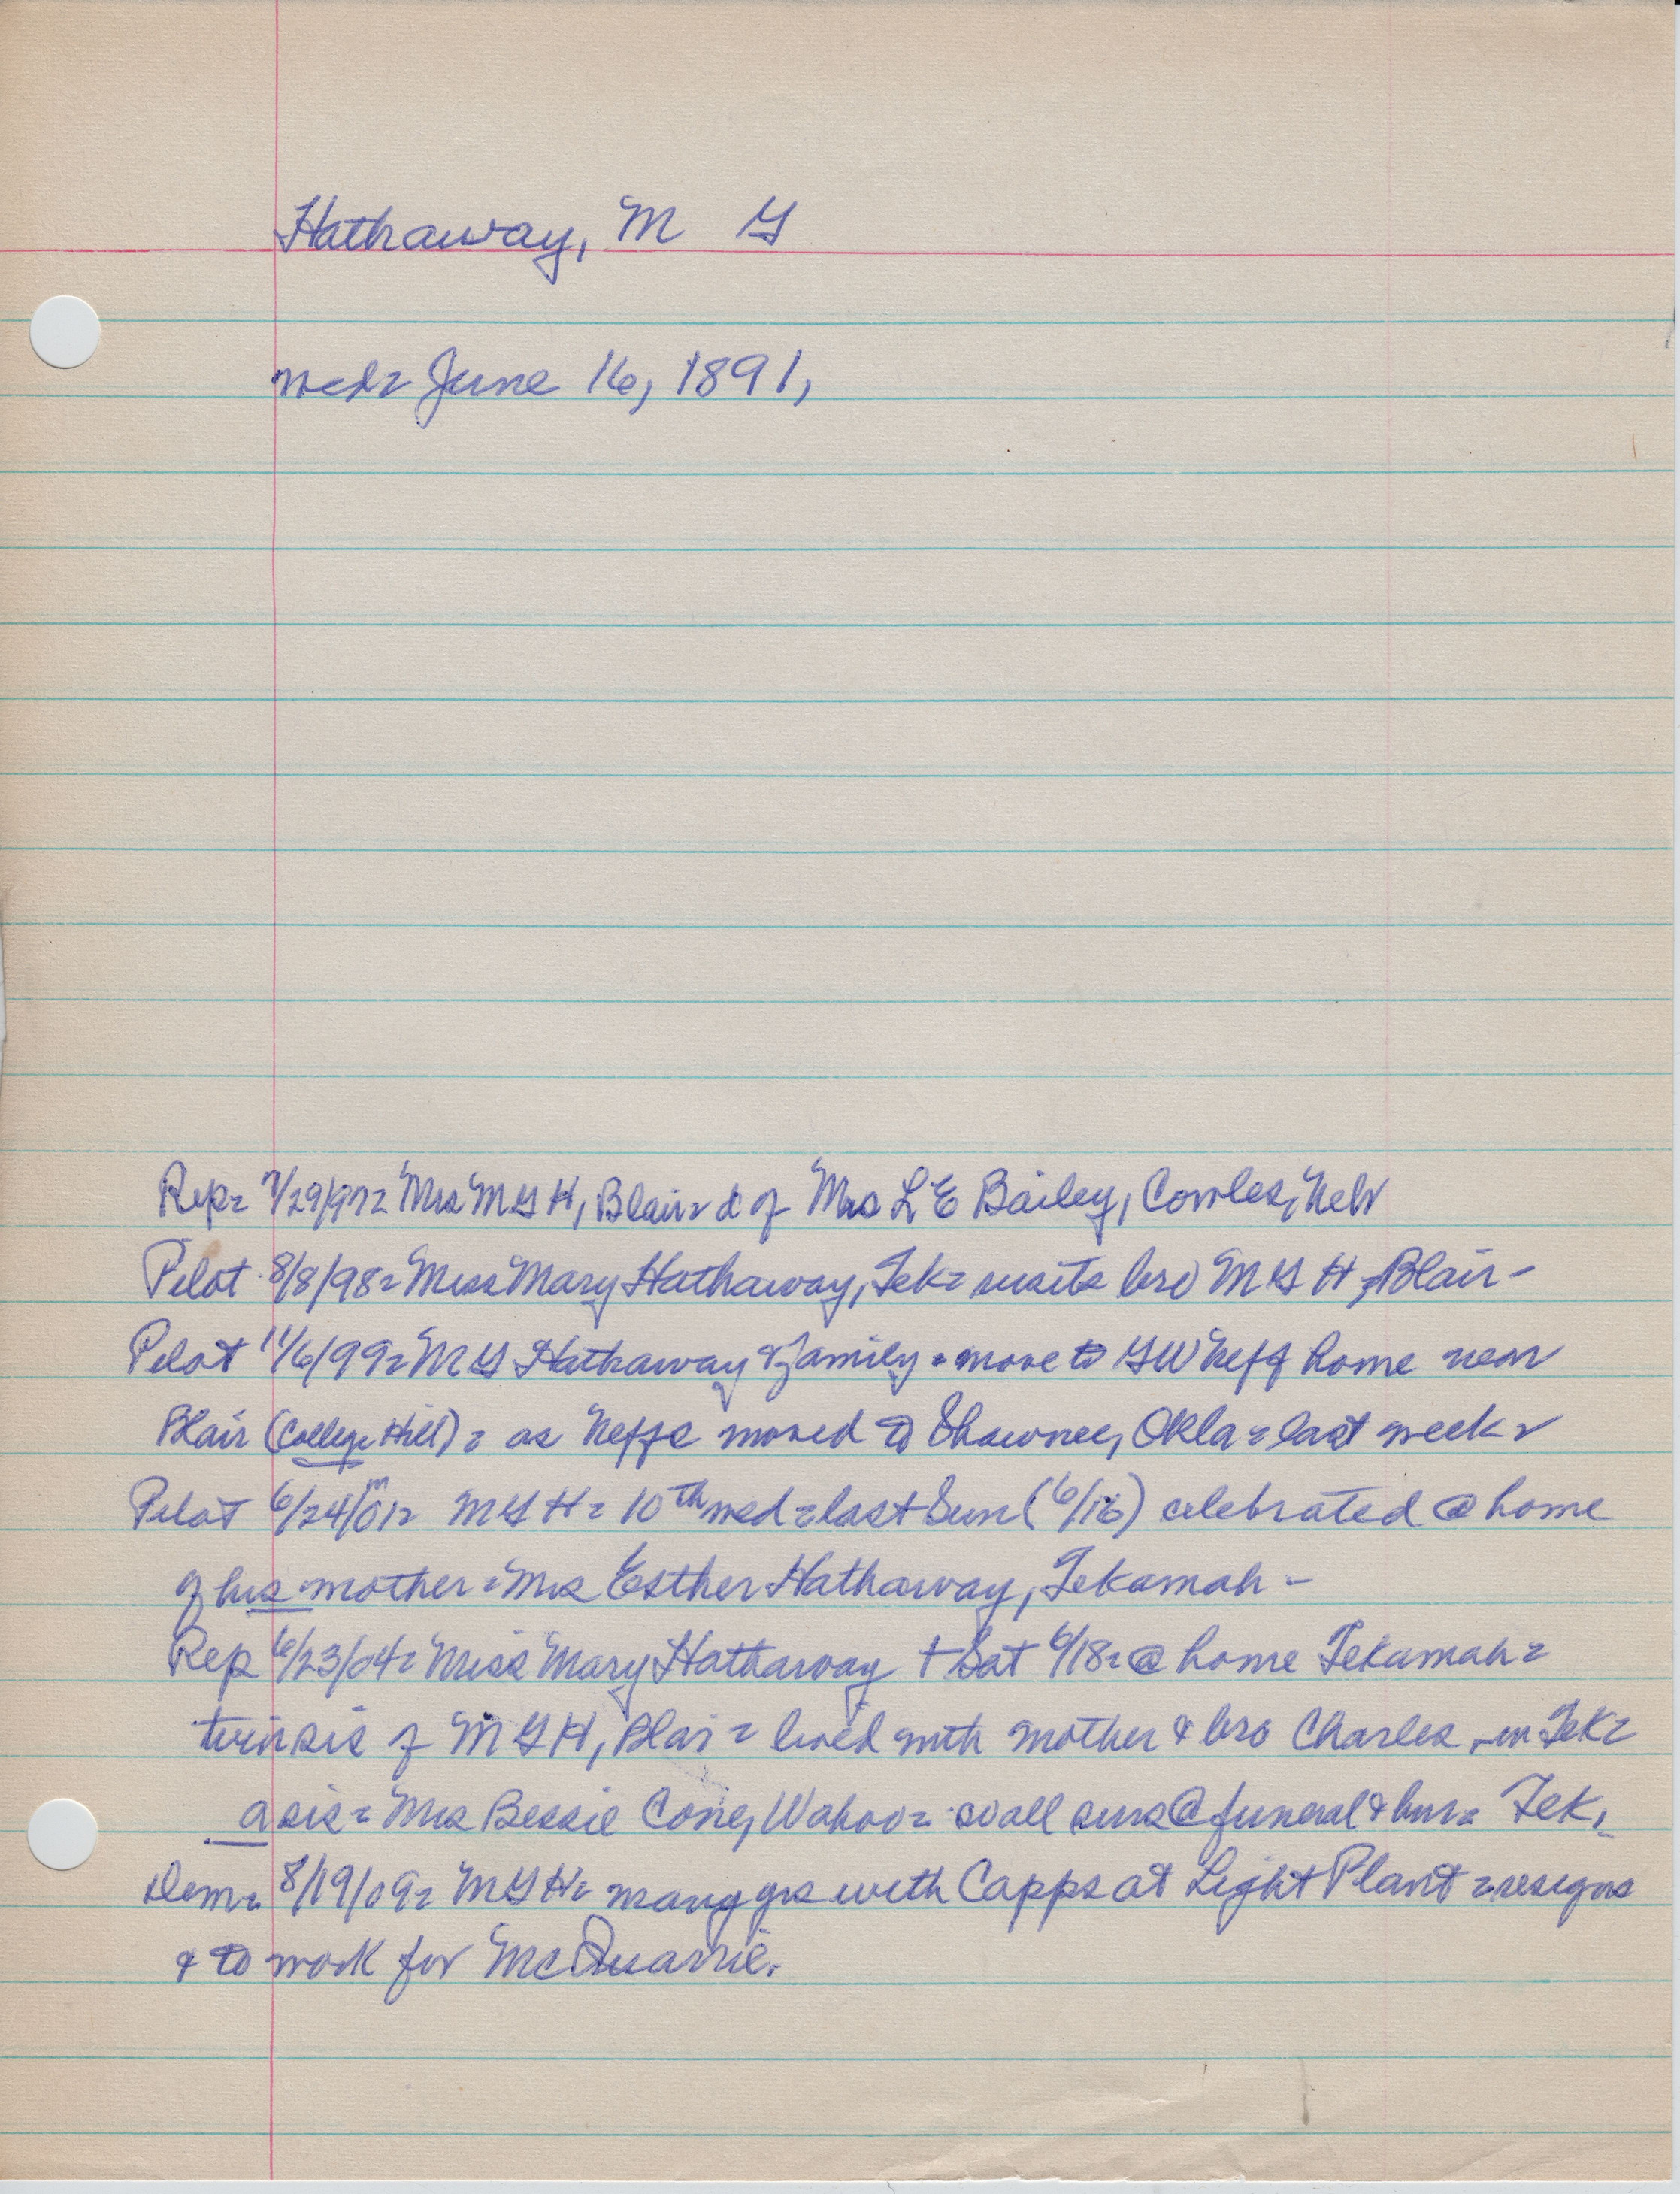 Hathaway, M G
wed= June 16, 1891,
Rep= 7/29/97= Mrs M G H, Blair= d of Mrs L E Bailey, Cowles, Nebr
Pilot 8/8/98= Miss Mary Hathaway, Tek= visits bro M G H, Blair-
Pilot 11/6/99= M G Hathaway & family = move to G W Neff home near
Blair (College Hill) = as Neffs moved to Shawnee, Okla = last week=
Pilot 6/24/01= M G H = 10th wed = last Sun (6/16) celebrated @ home
of his mother = Mrs Esther Hathaway, Tekamah -
Rep 6/23/04= Miss Mary Hathaway + Sat 6/18= @ home Tekamah=
twin sis of M G H, Blair = lived with mother & bro Charles, in Tek=
a sis = Mrs Bessie Cone, Wahoo= so all survs @ funeral & bur= Tek.
Dem= 8/19/09= M G H= many yrs with Capps at Light Plant = resigns
& to work for McQuarrie.